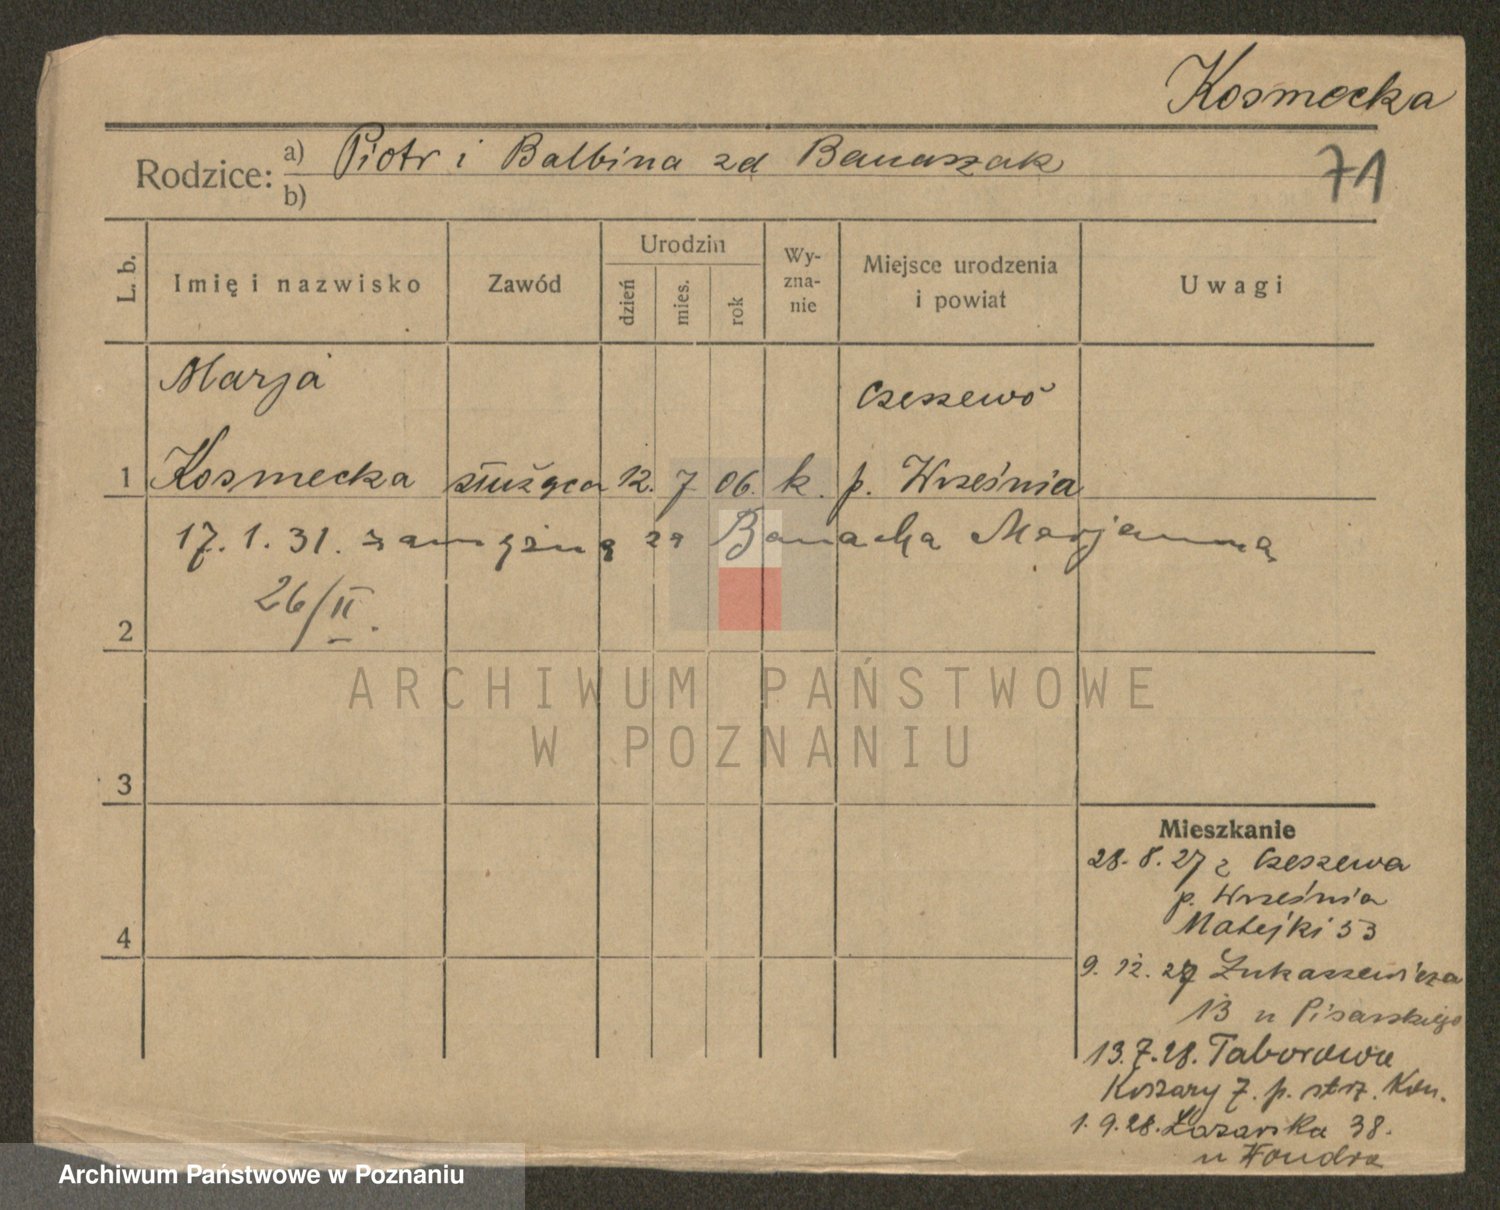 Kosmecka
Rodzice: a) Piotr i Balbina zd Banaszak
b)
71
L. b.
Imię i nazwisko
Zawód
Urodzin
dzień
mies.
rok
Wy-
zna-
nie
Miejsce urodzenia
i powiat
Uwagi
Marja
Czeszewo
1 Kosmecka służąca 12. 7 06. k. p. Września
17. 1. 31. zamężna za Banacha Marjanna
26/II.
2
3
4
Mieszkanie
28. 8. 27 z Czeszewa
p. Września
Matejki 53
9. 12. 27 Łukaszewicza
13 u Pisarskiego
13.7.28. Taborowa
Koszary 7. p. strz. Kon.
1. 9. 28. Łazarska 38.
u
ARCHIWUM PAŃSTWOWE
W POZNANIU
Archiwum Państwowe w Poznaniu